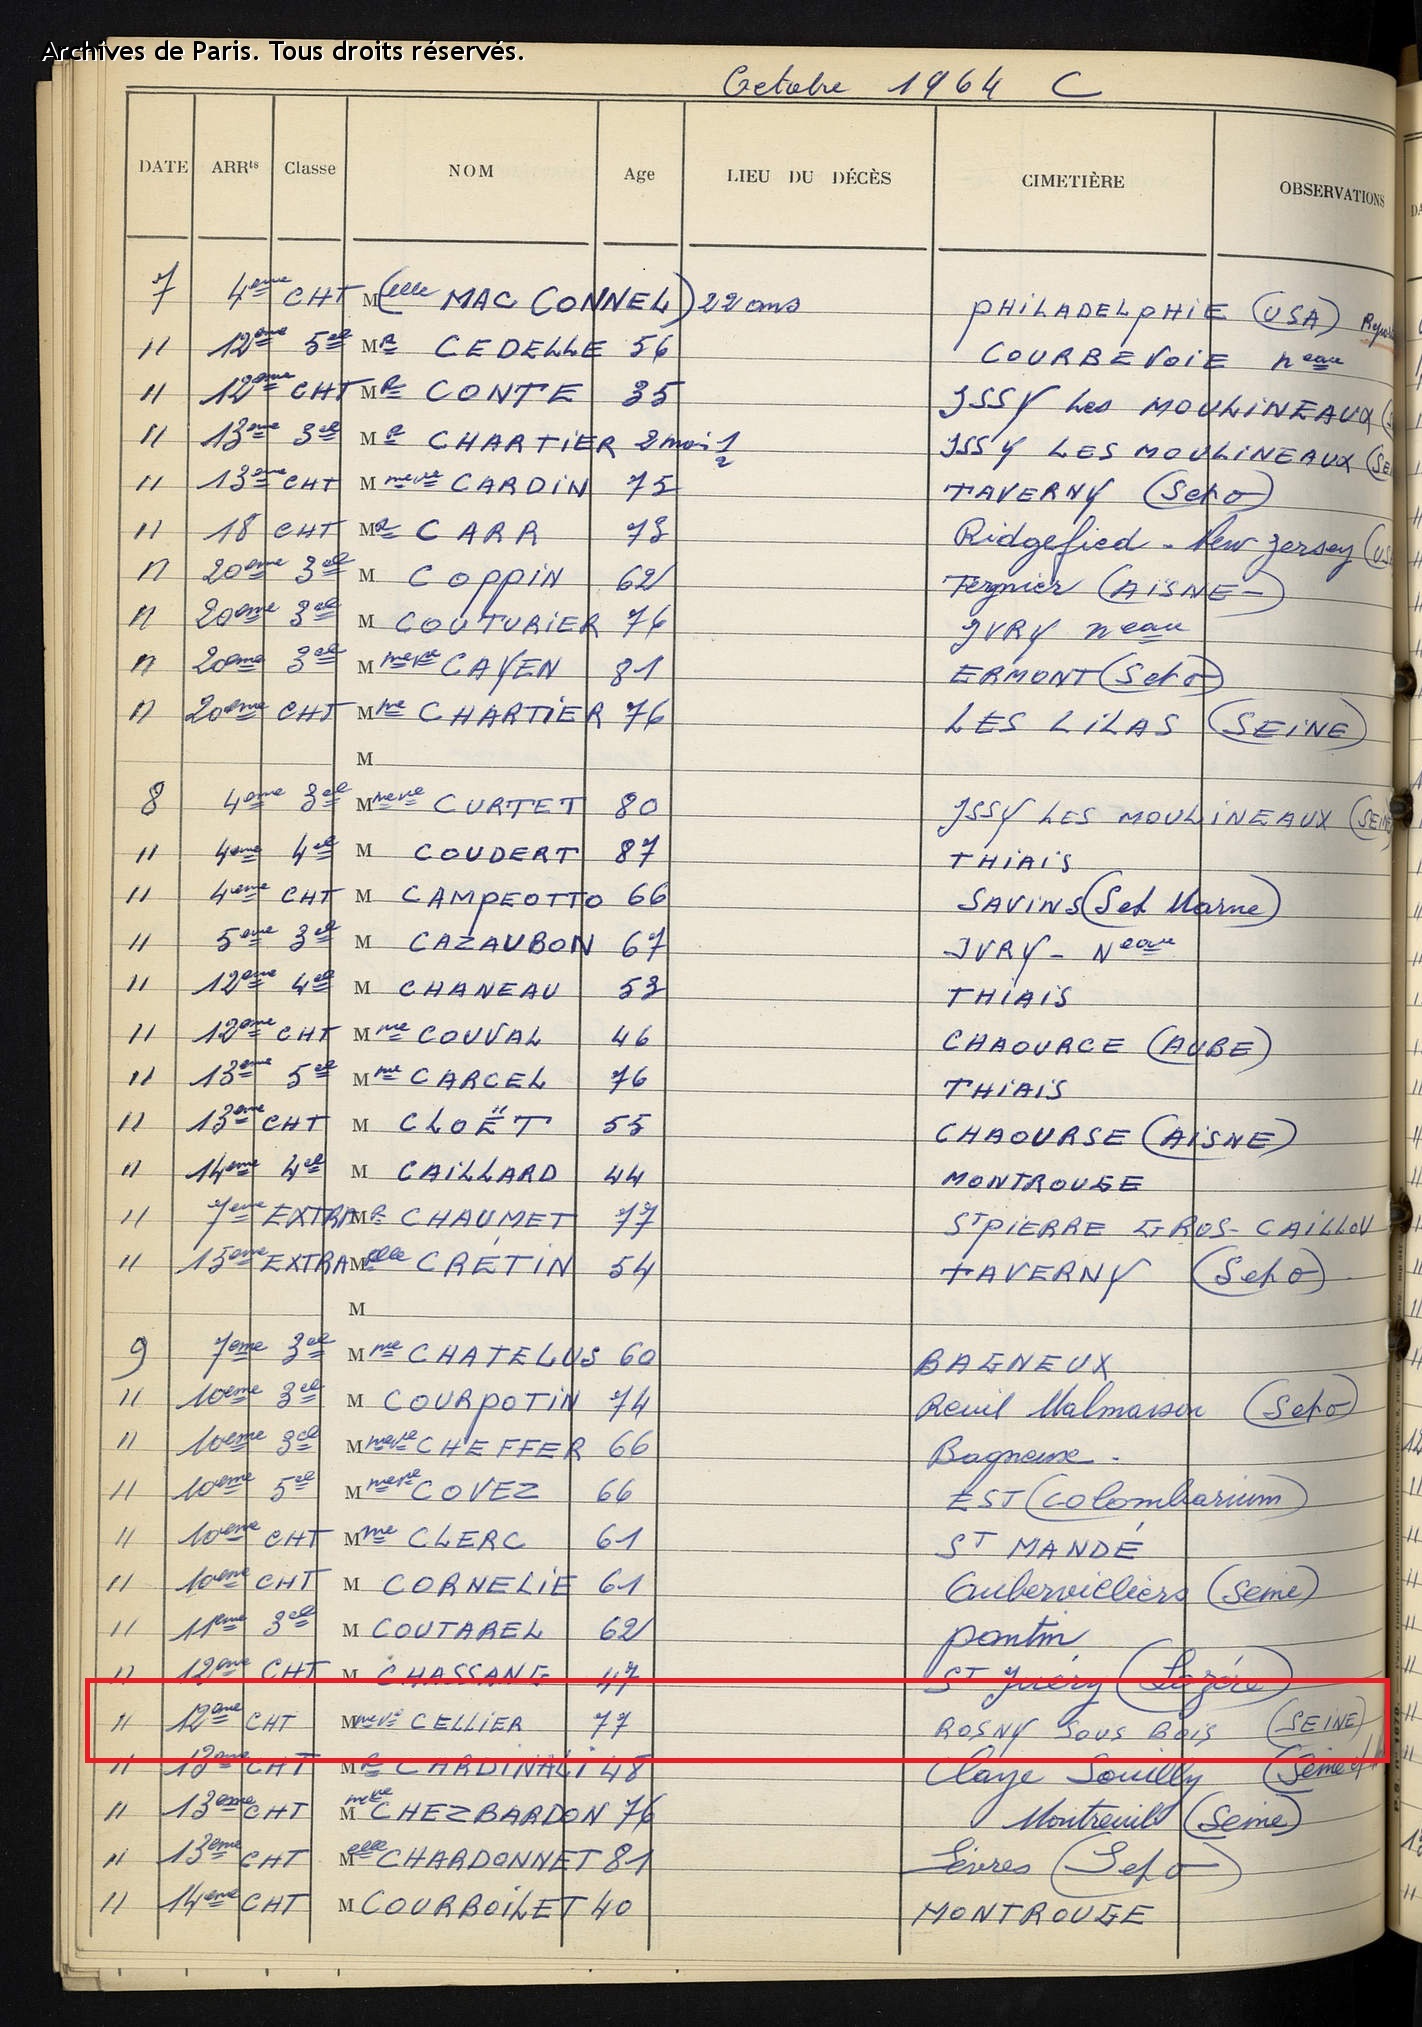 Archives de Paris. Tous droits réservés.
Octobre 1964 C
DATE ARRts Classe NOM Age LIEU DU DÉCÈS CIMETIÈRE OBSERVATIONS
7 4eme CHT M(elle MAC CONNEL) 22 ans PHILADELPHIE (USA)
" 12eme 5el MR CEDELLE 56 COURBEVOIE neau
" 12eme CHT MR CONTE 35 ISSY Les MOULINEAUX
" 13eme 3el MR CHARTIER 2 mois 1/2 ISSY LES MOULINEAUX (SE
" 13eme CHT M meve CARDIN 75 TAVERNY (SetO)
" 18 CHT MR CARR 73 Ridgefied - New Jersey (US
" 20eme 3el M COPPIN 62 Tergnier (AISNE-)
" 20eme 3el M COUTURIER 76 IVRY neau
" 20eme 3el M meve CAYEN 81 ERMONT (SetO)
" 20eme CHT Mme CHARTIER 76 LES LILAS (SEINE)
M
8 4eme 3el M meve CURTET 80 ISSY LES MOULINEAUX (SEINE
" 4eme 4el M COUDERT 87 THIAIS
" 4eme CHT M CAMPEOTTO 66 SAVINS (Set Marne)
" 5eme 3el M CAZAUBON 67 IVRY - Neau
" 12eme 4el M CHANEAU 53 THIAIS
" 12eme CHT Mme COUVAL 46 CHAOURCE (AUBE)
" 13eme 5el Mme CARCEL 76 THIAIS
" 13eme CHT M CLOËT 55 CHAOURSE (AISNE)
" 14eme 4el M CAILLARD 44 MONTROUGE
" 7eme EXTRA MR CHAUMET 77 ST PIERRE GROS-CAILLOU
" 15eme EXTRA Melle CRÉTIN 54 TAVERNY (SetO)
M
9 7eme 3el Mme CHATELUS 60 BAGNEUX
" 10eme 3el M COURPOTIN 74 Reuil Malmaison (SetO)
" 10eme 3el M meve CHEFFER 66 Bagneux.
" 10eme 5el M meve COVEZ 66 EST (Colombarium)
" 10eme CHT Mme CLERC 61 ST MANDÉ
" 10eme CHT M CORNELIE 61 Aubervilliers (Seine)
" 11eme 3el M COUTAREL 62 pantin
" 12eme CHT M CHASSANG 47 ST Juéry (Lozére)
" 12eme CHT M meve CELLIER 77 ROSNY SOUS BOIS (SEINE)
" 12eme CHT MR CARDINALI 48 Claye Souilly (Seine et
" 13eme CHT M meve CHEZBARDON 76 Montreuil (Seine)
" 13eme CHT Melle CHARDONNET 81 Sèvres (SetO)
" 14eme CHT M COURBOILET 40 MONTROUGE